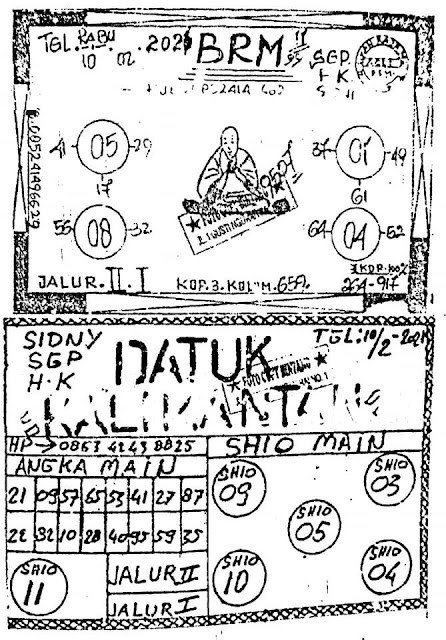 TGL. RABU 10 02 2021
BRM
SGP
HK
41 05 29
17
56 08 32
37 01 49
61
64 04 52
JALUR. II. I
KOP. 3. KOL"M. 659.
254-917
SIDNY
SGP
H.K
TGL: 10/2-2021
DATUK
KALIKANTANG
HP → 0863 4243 8825
ANGKA MAIN
SHIO MAIN
21 09 57 65 53 41 27 87
22 32 10 28 40 95 59 35
SHIO 09
SHIO 03
SHIO 05
SHIO 10
SHIO 04
SHIO 11
JALUR II
JALUR I